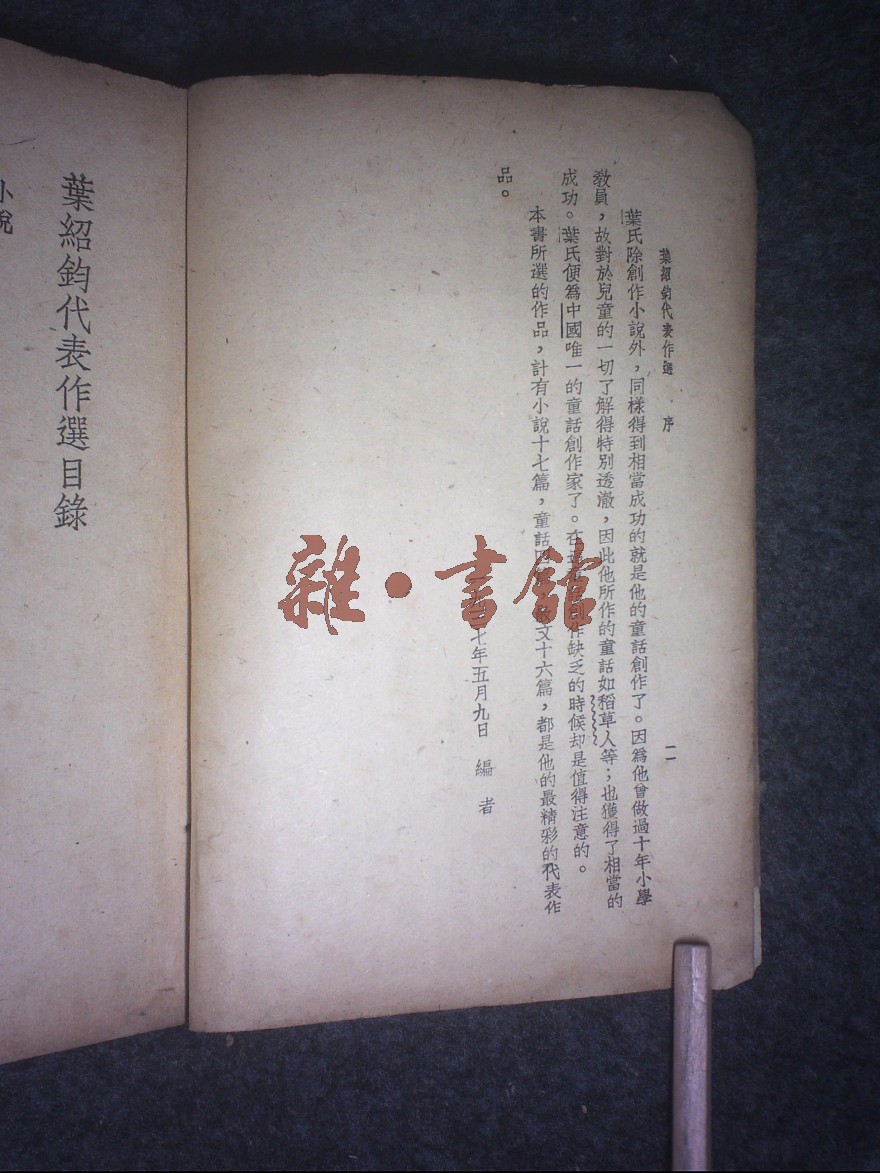 葉紹鈞代表作選　序　二
葉氏除創作小說外，同樣得到相當成功的就是他的童話創作了。因爲他曾做過十年小學
教員，故對於兒童的一切了解得特別透澈，因此他所作的童話如稻草人等；也獲得了相當的
成功。葉氏便爲中國唯一的童話創作家了。在 創作缺乏的時候却是值得注意的。
本書所選的作品，計有小說十七篇，童話 文十六篇，都是他的最精彩的代表作
品。
七年五月九日　編者
葉紹鈞代表作選目錄
小說
雜·書館